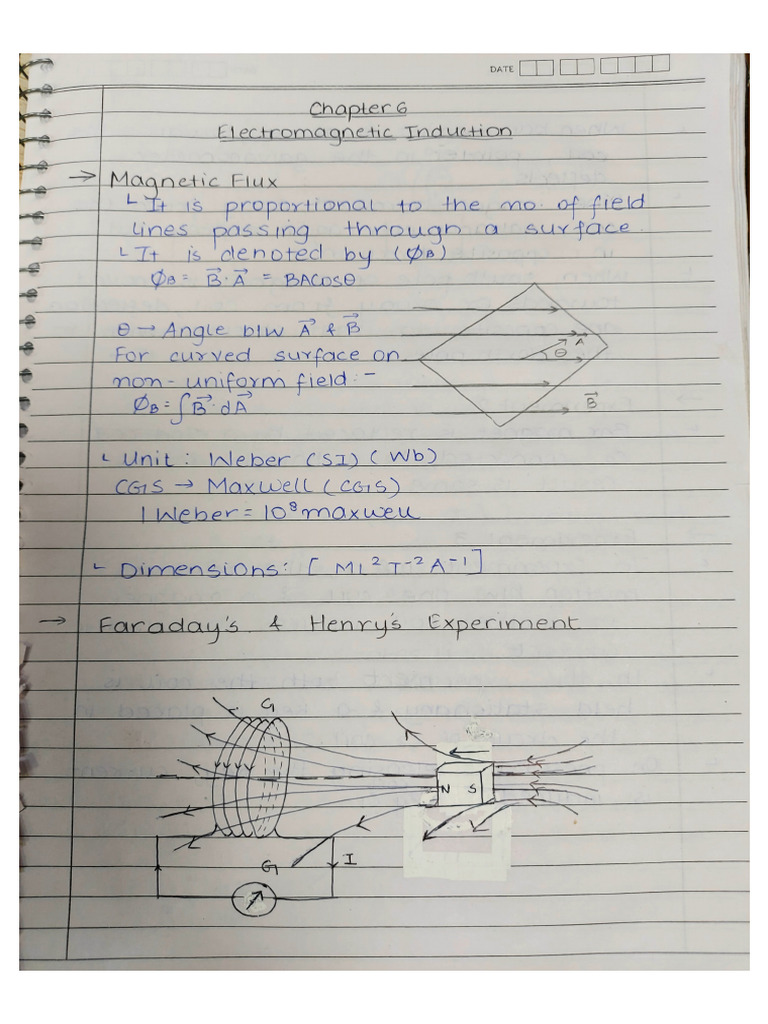 DATE
Chapter 6
Electromagnetic Induction
→ Magnetic Flux
└ It is proportional to the no. of field
lines passing through a surface.
└ It is denoted by (ϕB)
ϕB = B⃗·A⃗ = BACosθ
θ → Angle b/w A⃗ & B⃗
For curved surface on
non-uniform field:-
ϕB = ∫B⃗·dA⃗
A⃗
θ
B⃗
└ Unit: Weber (SI) (Wb)
CGS → Maxwell (CGS)
1 Weber = 10⁸ maxwell
└ Dimensions: [ ML² T⁻² A⁻¹]
→ Faraday's & Henry's Experiment
G
N S
G I